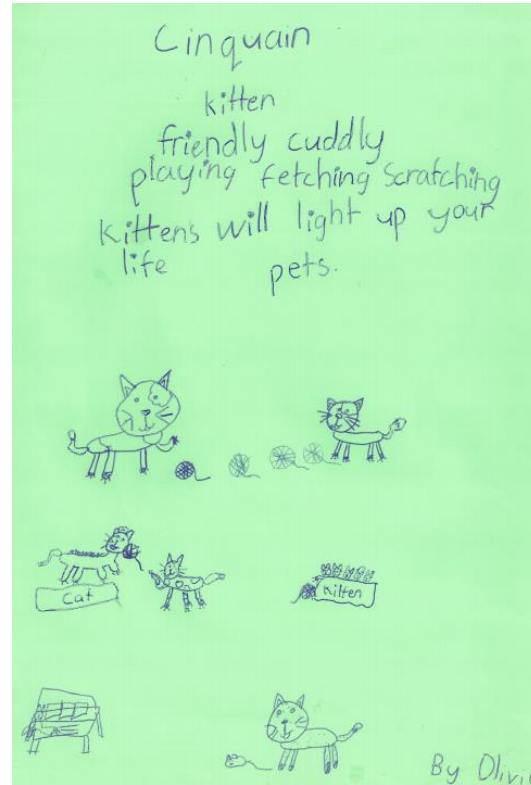 Cinquain
kitten
friendly cuddly
playing fetching scratching
kittens will light up your
life pets.
cat
kitten
By Olivi